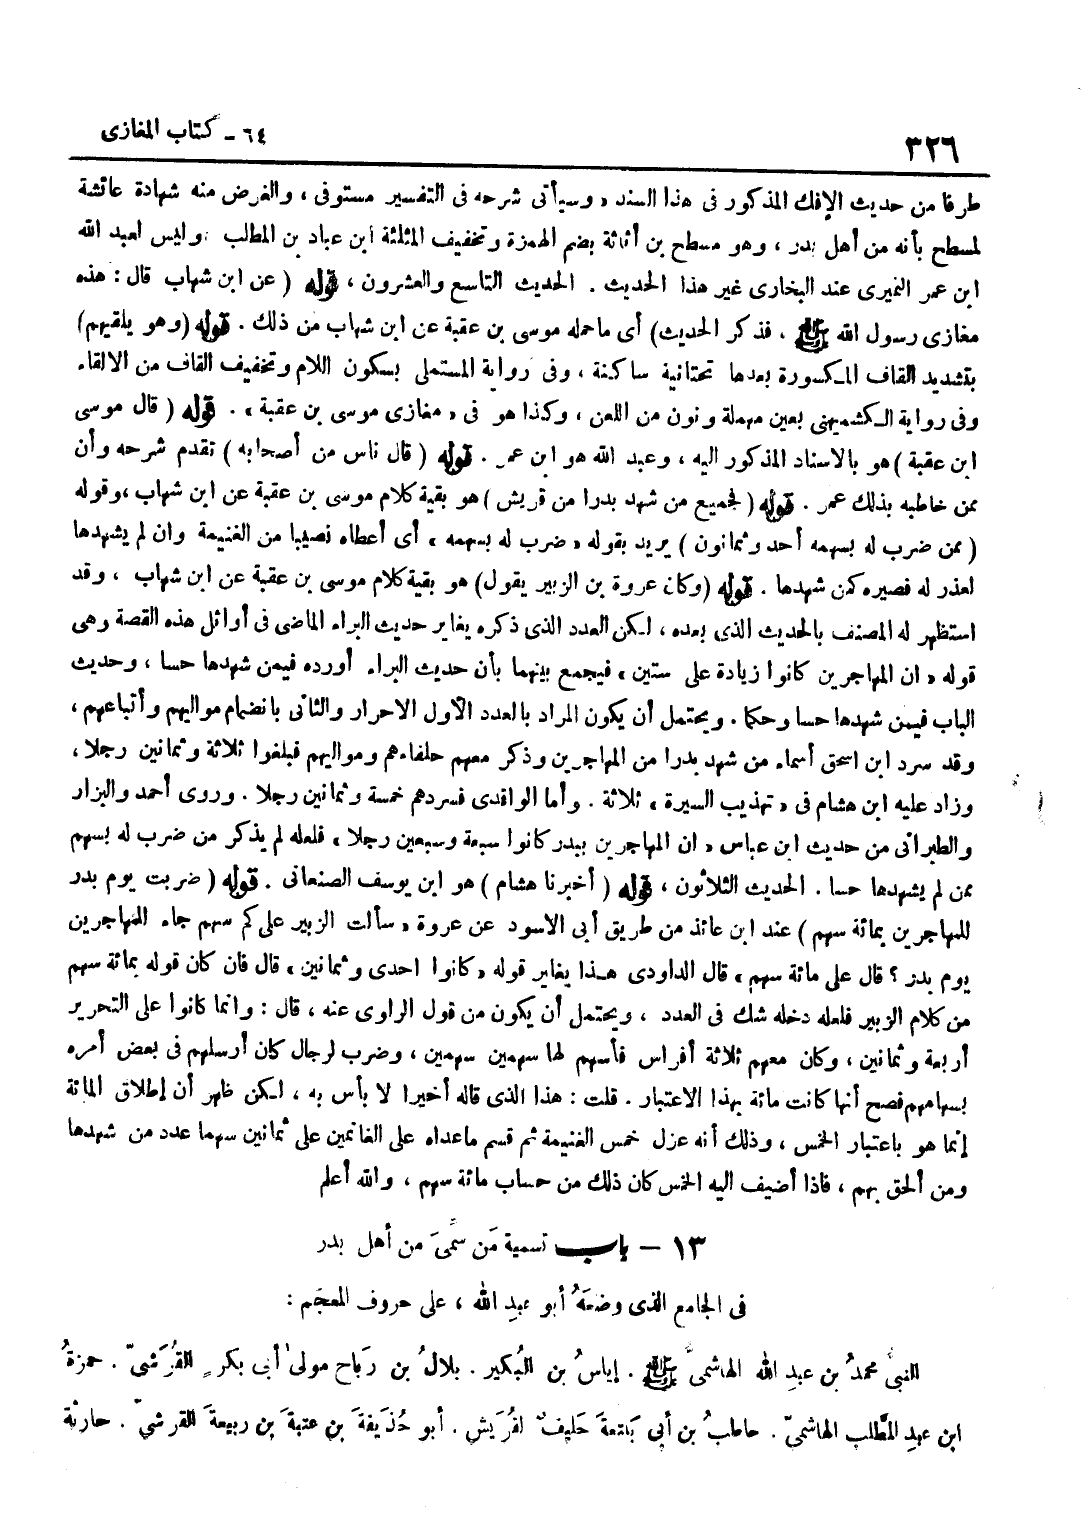 ٣٢٦
٦٤ - كتاب المغازى
طرفا من حديث الإفك المذكور فى هذا السند ، وسيأتى شرحه فى التفسير مستوفى ، والغرض منه شهادة عائشة
لمسطح بأنه من أهل بدر ، وهو مسطح بن أثاثة بضم الهمزة وتخفيف المثلثة ابن عباد بن المطلب . وليس لعبد الله
ابن عمر النميرى عند البخارى غير هذا الحديث . الحديث التاسع والعشرون ، قوله ( عن ابن شهاب قال : هذه
مغازى رسول الله ﷺ ، فذكر الحديث) أى ما حمله موسى بن عقبة عن ابن شهاب من ذلك . قوله (وهو يلقيهم)
بتشديد القاف المكسورة بعدها تحتانية ساكنة ، وفى رواية المستملى بسكون اللام وتخفيف القاف من الالقاء
وفى رواية الكشميهنى بعين مهملة ونون من اللعن ، وكذا هو فى « مغازى موسى بن عقبة » . قوله ( قال موسى
ابن عقبة ) هو بالاسناد المذكور اليه ، وعبد الله هو ابن عمر . قوله ( قال ناس من أصحابه ) تقدم شرحه وأن
ممن خاطبه بذلك عمر . قوله ( فجميع من شهد بدرا من قريش ) هو بقية كلام موسى بن عقبة عن ابن شهاب ، وقوله
( ممن ضرب له بسهمه أحد وثمانون ) يريد بقوله « ضرب له بسهمه » أى أعطاه نصيبا من الغنيمة وان لم يشهدها
لعذر له فصيره كمن شهدها . قوله (وكان عروة بن الزبير يقول) هو بقية كلام موسى بن عقبة عن ابن شهاب ، وقد
استظهر له المصنف بالحديث الذى بعده ، لكن العدد الذى ذكره يغاير حديث البراء الماضى فى أوائل هذه القصة وهى
قوله « ان المهاجرين كانوا زيادة على ستين » فيجمع بينهما بأن حديث البراء أورده فيمن شهدها حسا ، وحديث
الباب فيمن شهدها حسا وحكما . ويحتمل أن يكون المراد بالعدد الأول الاحرار والثانى بانضمام مواليهم وأتباعهم ،
وقد سرد ابن اسحق أسماء من شهد بدرا من المهاجرين وذكر معهم حلفاءهم ومواليهم فبلغوا ثلاثة وثمانين رجلا ،
وزاد عليه ابن هشام فى « تهذيب السيرة » ثلاثة . وأما الواقدى فسردهم خمسة وثمانين رجلا . وروى أحمد والبزار
والطبرانى من حديث ابن عباس « ان المهاجرين ببدر كانوا سبعة وسبعين رجلا » فلعله لم يذكر من ضرب له بسهم
ممن لم يشهدها حسا . الحديث الثلاثون ، قوله ( أخبرنا هشام ) هو ابن يوسف الصنعانى . قوله ( ضربت يوم بدر
للمهاجرين بمائة سهم ) عند ابن عائذ من طريق أبى الاسود عن عروة « سألت الزبير على كم سهم جاء للمهاجرين
يوم بدر ؟ قال على مائة سهم » قال الداودى هذا يغاير قوله « كانوا احدى وثمانين » قال فان كان قوله بمائة سهم
من كلام الزبير فلعله دخله شك فى العدد ، ويحتمل أن يكون من قول الراوى عنه ، قال : وانما كانوا على التحرير
أربعة وثمانين ، وكان معهم ثلاثة أفراس فأسهم لها سهمين سهمين ، وضرب لرجال كان أرسلهم فى بعض أمره
بسهامهم فصح أنها كانت مائة بهذا الاعتبار . قلت : هذا الذى قاله أخيرا لا بأس به ، لكن ظهر أن إطلاق المائة
إنما هو باعتبار الخمس ، وذلك أنه عزل خمس الغنيمة ثم قسم ماعداه على الغانمين على ثمانين سهما عدد من شهدها
ومن ألحق بهم ، فاذا أضيف اليه الخمس كان ذلك من حساب مائة سهم ، والله أعلم
١٣ - باب تسمية مَن سُمِّىَ من أهل بدر
فى الجامع الذى وضعَهُ أبو عبدِ الله ، على حروف المعجَم :
النبىُّ محمدُ بن عبدِ الله الهاشمىُّ ﷺ . إياسُ بن البُكير . بلالُ بن رَباح مولىٰ أبى بكرٍ القُرَشىّ . حمزةُ
ابن عبدِ المطَّلب الهاشمىّ . حاطبُ بن أبى بَلتعةَ حَليفٌ لقُرَيش . أبو حُذَيفةَ بن عتبةَ بن ربيعةَ القرشىّ . حارثة